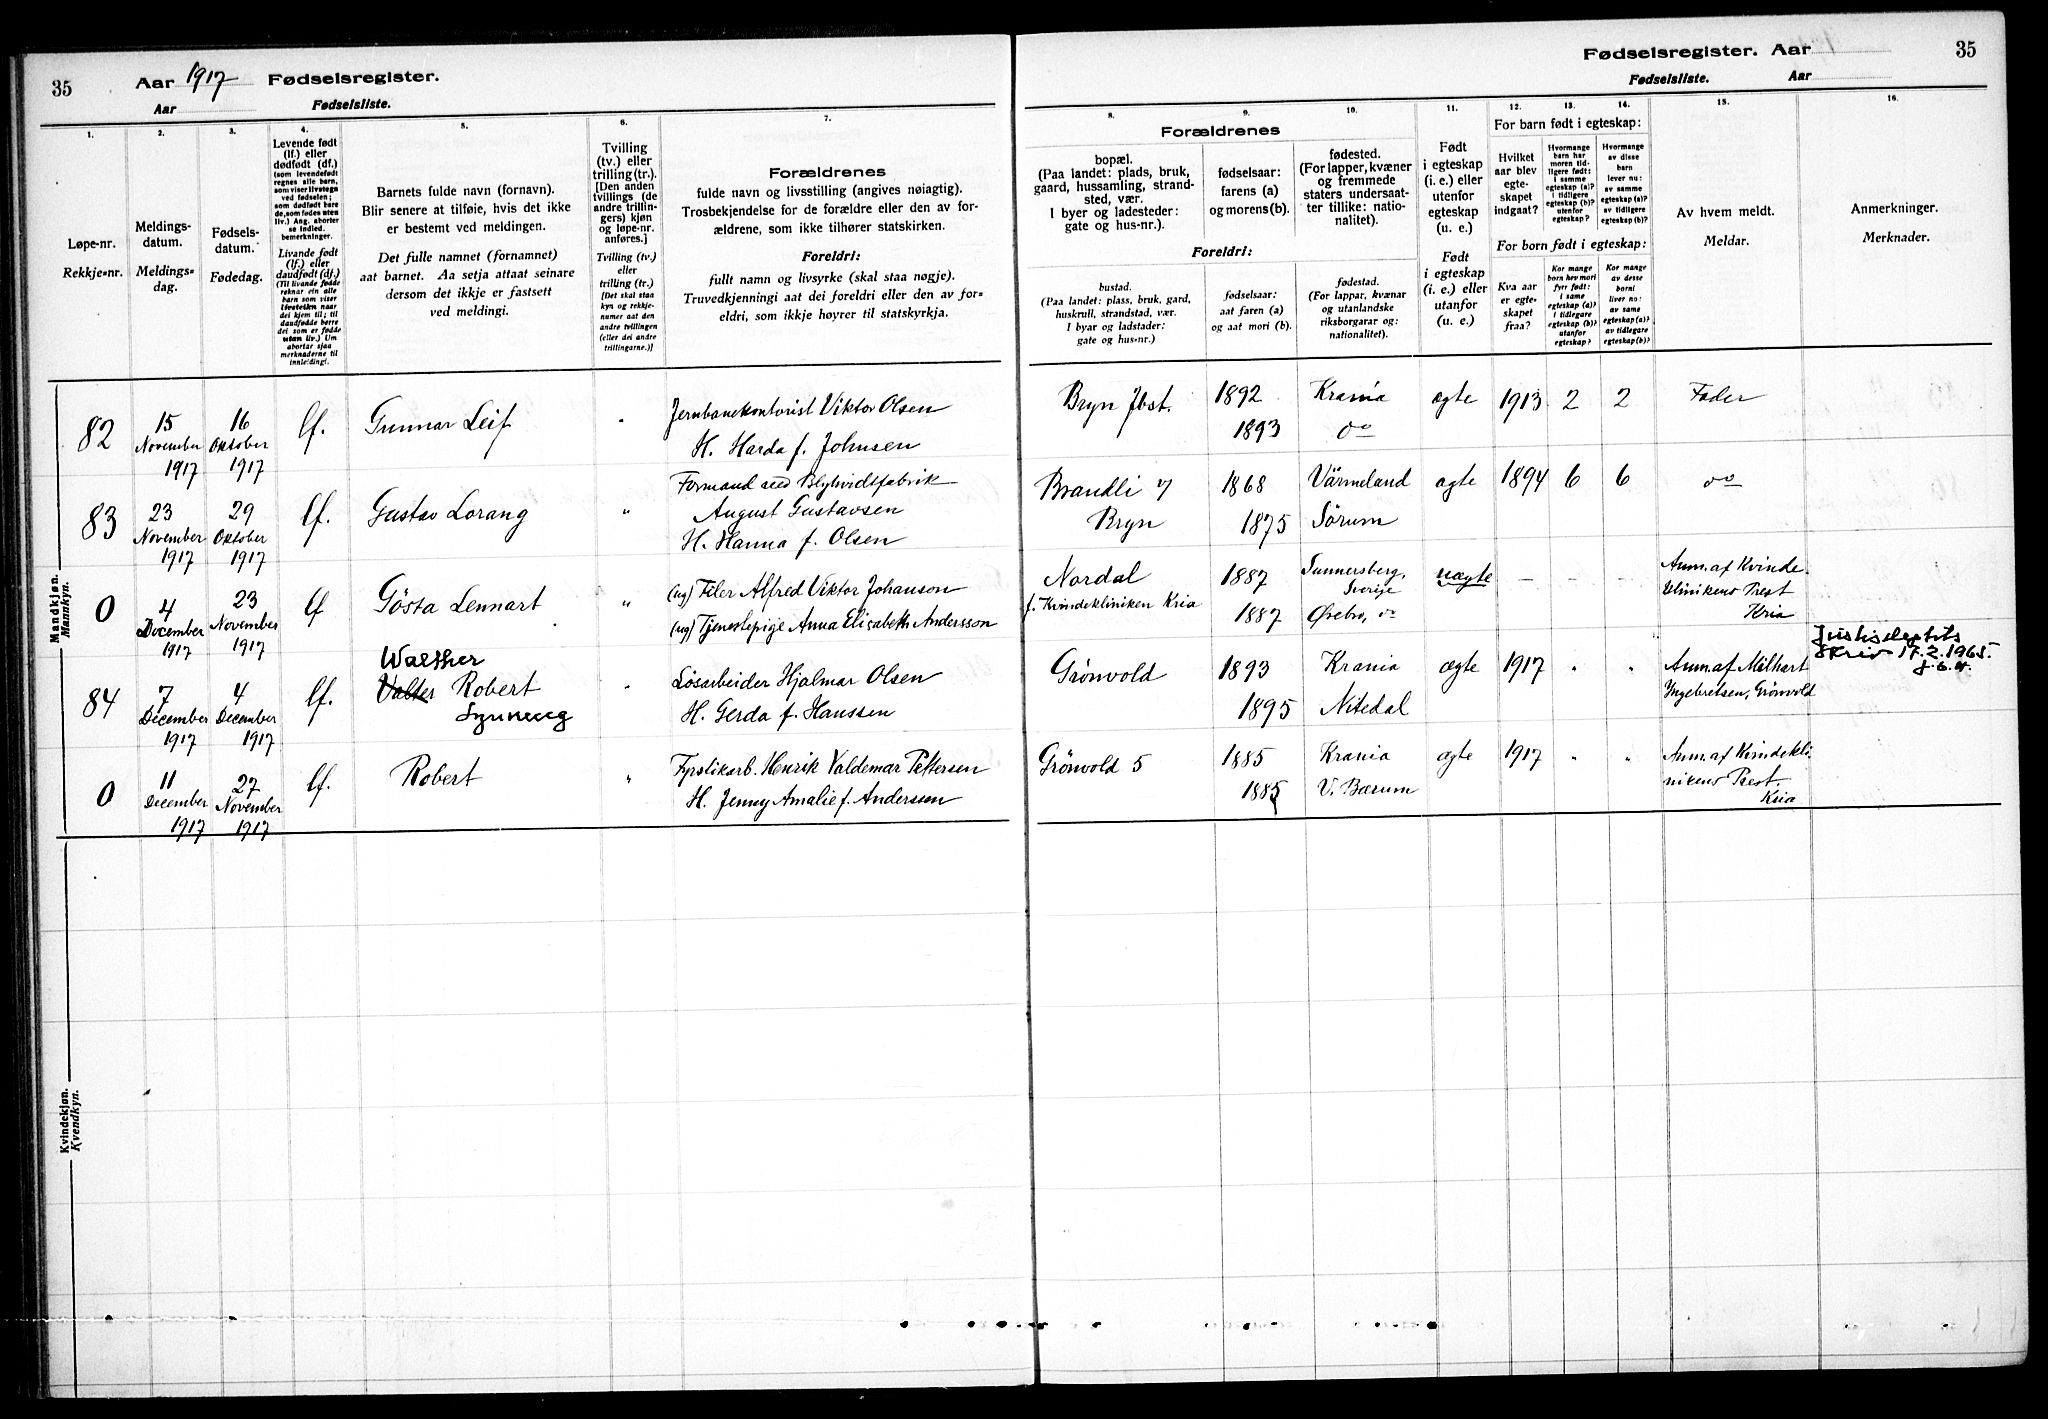 35
Aar 1917 Fødselsregister.
Aar Fødselsliste.
1.
2.
3.
4.
5.
6.
7.
Løpe-nr.
Rekkje-nr.
Meldings-
datum.
Meldings-
dag.
Fødsels-
datum.
Fødedag.
Levende født
(lf.) eller
dødfødt (df.)
(som levendefødt
regnes alle barn,
som viser livstegn
ved fødselen;
som dødfødt bare
de, som fødes uten
liv.) Ang. aborter
se indled.
bemerkninger.
Livande født
(lf.) eller
daudfødt (df.)
(Til livande fødde
reknar ein alle
barn som viser
livsteikn naar
dei kjem til; til
daudfødde berre
dei som er fødde
utan liv.) Um
abortar sjaa
merknaderne til
innleiding!.
Barnets fulde navn (fornavn).
Blir senere at tilføie, hvis det ikke
er bestemt ved meldingen.
Det fulle namnet (fornamnet)
aat barnet. Aa setja attaat seinare
dersom det ikkje er fastsett
ved meldingi.
Tvilling
(tv.) eller
trilling (tr.).
[Den anden
tvillings (de
andre trillin-
gers) kjøn
og løpe-nr.
anføres.]
Tvilling (tv.)
eller
trilling (tr.)
[Det skal staa
kyn og rekkje-
numer aat den
andre tvillingen
(eller dei andre
trillingarne.)]
Forældrenes
fulde navn og livsstilling (angives nøiagtig).
Trosbekjendelse for de forældre eller den av for-
ældrene, som ikke tilhører statskirken.
Foreldri:
fullt namn og livsyrke (skal staa nøgje).
Truvedkjenningi aat dei foreldri eller den av for-
eldri, som ikkje høyrer til statskyrkja.
Mandkjøn.
Mannkyn.
82
15
November
1917
16
Oktober
1917
lf.
Gunnar Leif
"
Jernbanekontorist Viktor Olsen
H. Harda f. Johnsen
83
23
November
1917
29
Oktober
1917
lf.
Gustav Lorang
"
Formand ved Blyhvidtfabrik
August Gustavsen
H. Hanna f. Olsen
0
4
December
1917
23
November
1917
lf
Gösta Lennart
"
(ug) Filer Alfred Viktor Johanson
(ug) Tjenestepige Anna Elisabeth Andersson
84
7
December
1917
4
December
1917
lf.
Walther
Valter Robert
"
Løsarbeider Hjalmar Olsen
H. Gerda f. Hanssen
0
11
December
1917
27
November
1917
lf.
Robert
"
Fyrstikarb. Henrik Valdemar Pettersen
H. Jenny Amalie f. Anderssen
Kvindekjøn.
Kvendkyn.
Fødselsregister. Aar
35
Fødselsliste. Aar
8.
9.
10.
11.
12.
13.
14.
15.
16.
Forældrenes
bopæl.
(Paa landet: plads, bruk,
gaard, hussamling, strand-
sted, vær.
I byer og ladesteder:
gate og hus-nr.).
fødselsaar:
farens (a)
og morens (b).
fødested.
(For lapper, kvæner
og fremmede
staters undersaat-
ter tillike: natio-
nalitet).
Foreldri:
bustad.
(Paa landet: plass, bruk, gard,
huskrull, strandstad, vær.
I byar og ladstader:
gate og hus-nr.)
fødselsaar:
aat faren (a)
og aat mori (b).
fødestad.
(For lappar, kvænar
og utanlandske
riksborgarar og:
nationalitet).
Født
i egteskap
(i. e.) eller
utenfor
egteskap
(u. e.)
Født
i egteskap
(i. e.) eller
utanfor
(u. e.)
For barn født i egteskap:
Hvilket
aar blev
egte-
skapet
indgaat?
Hvormange
barn har
moren tid-
ligere født:
i samme
egteskap (a)?
i tidligere
egteskap (b)?
utenfor
egteskap?
Hvormange
av disse
barn
lever nu:
av samme
egteskap (a)?
av tidligere
egteskap (b)?
For born født i egteskap:
Kva aar
er egte-
skapet
fraa?
Kor mange
born hev mori
fyrr født:
i same
egteskap (a)?
i tidlegare
egteskap (b)?
utanfor
egteskap?
Kor mange
av desse
borni
liver no:
av same
egteskap (a)?
av tidlegare
egteskap (b)?
Av hvem meldt.
Meldar.
Anmerkninger.
Merknader.
Bryn Jbst.
1892
1893
Krania
do
ægte
1913
2
2
Fader
Brandli
Bryn
1868
1875
Värmeland
Sørum
ægte
1894
6
6
do
Nordal
f. Kvindekliniken Kria
1887
1887
Sverige
Ørebro, do
uægte
–
–
–
Anm. af Kvinde
klinikens Prest
Kria
Grönvold
1893
1895
Krania
Nitedal
ægte
1917
"
"
Anm. af
Ingebretsen, Grønvold
skriv 17.2.1965.
Grönvold 5
1885
1885
Krania
V. Bærum
ægte
1917
"
"
Anm. af Kvindekli
nikens Prest.
Kria